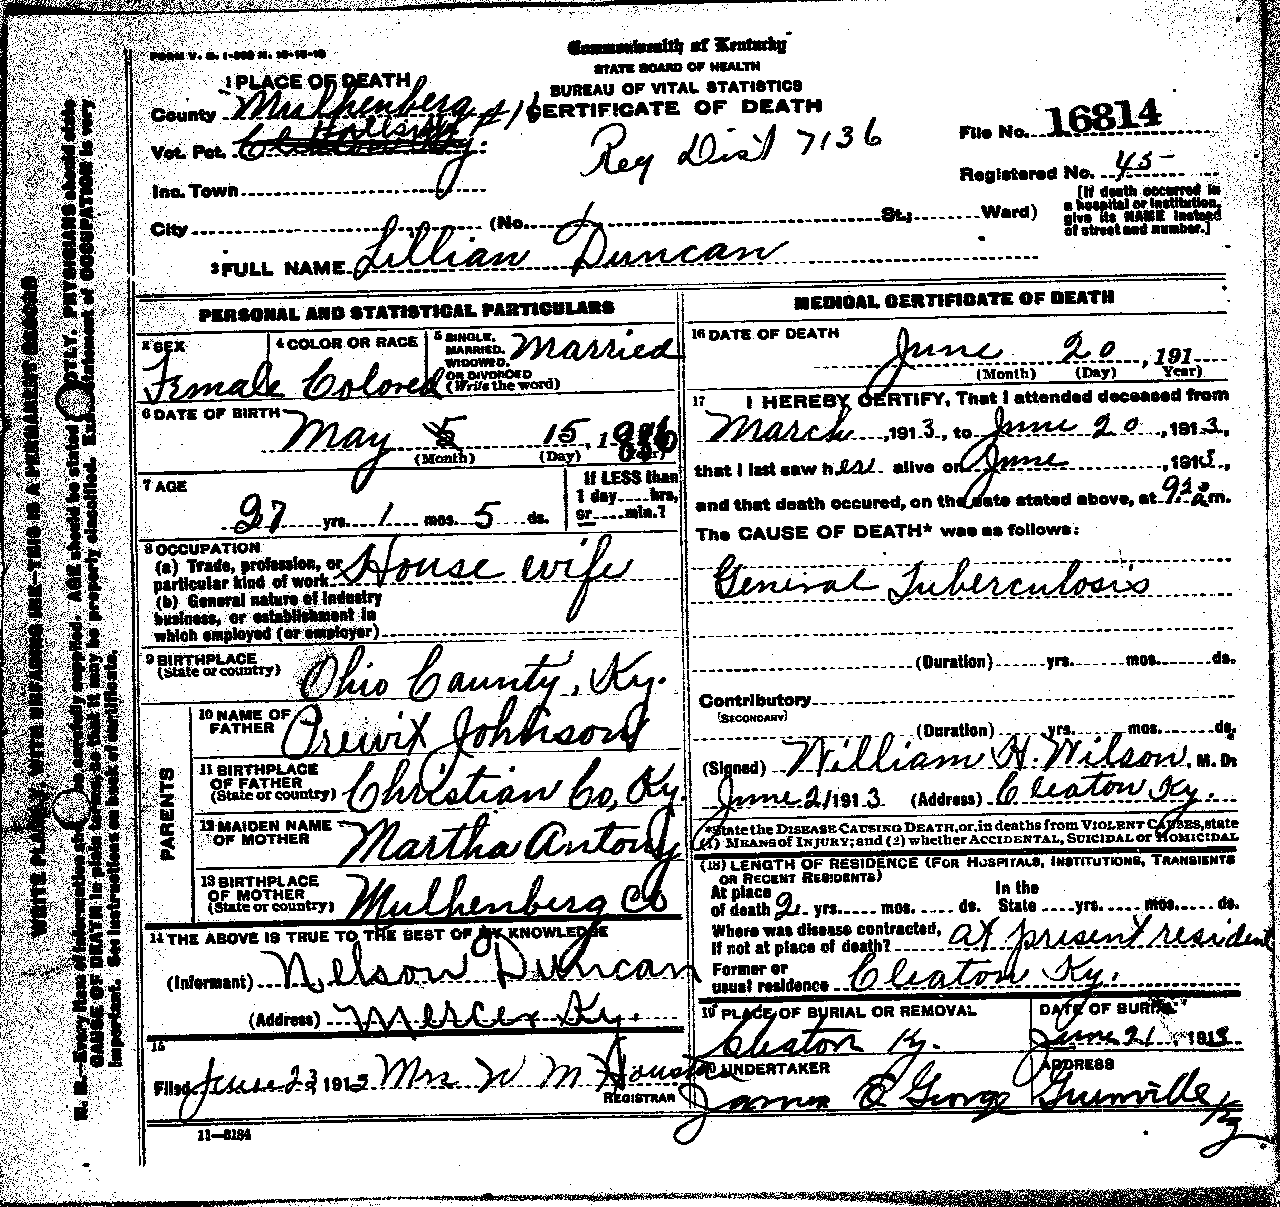 FORM V. S. 1-
Commonwealth of Kentucky
STATE BOARD OF HEALTH
BUREAU OF VITAL STATISTICS
CERTIFICATE OF DEATH
1 PLACE OF DEATH
County Muhlenberg #16
Vot. Pct.
Reg Dist 7136
File No. 16814
Registered No. 45
Inc. Town
City (No. St.; Ward)
[If death occurred in
a hospital or institution,
give its NAME instead
of street and number.]
2 FULL NAME Lillian Duncan
PERSONAL AND STATISTICAL PARTICULARS
3 SEX
Female
4 COLOR OR RACE
Colored
5 SINGLE,
MARRIED,
WIDOWED,
OR DIVORCED
(Write the word)
Married
6 DATE OF BIRTH
May 5 15, 1
(Month) (Day) (Year)
7 AGE
27 yrs. 1 mos. 5 ds.
If LESS than
1 day.... hrs,
or.....min.?
8 OCCUPATION
(a) Trade, profession, or
particular kind of work House wife
(b) General nature of industry
business, or establishment in
which employed (or employer)
9 BIRTHPLACE
(State or country) Ohio County, Ky.
PARENTS
10 NAME OF
FATHER Prewit Johnson
11 BIRTHPLACE
OF FATHER
(State or country) Christian Co, Ky.
12 MAIDEN NAME
OF MOTHER Martha Antony
13 BIRTHPLACE
OF MOTHER
(State or country) Mulhenberg Co
14 THE ABOVE IS TRUE TO THE BEST OF MY KNOWLEDGE
(Informant) Nelson Duncan
(Address) Mercer Ky.
15
Filed June 23 1913 Mrs W M Houston
REGISTRAR
11-8184
MEDICAL CERTIFICATE OF DEATH
16 DATE OF DEATH
June 20, 191
(Month) (Day) Year)
17 I HEREBY CERTIFY, That I attended deceased from
March, 1913, to June 20, 1913,
that I last saw her alive on June, 1913,
and that death occured, on the date stated above, at 9 am.
The CAUSE OF DEATH* was as follows:
General Tuberculosis
(Duration) yrs. mos. ds.
Contributory
(SECONDARY)
(Duration) yrs. mos. ds.
(Signed) William H. Wilson, M. D.
June 21 1913 (Address) Cleaton Ky.
*State the DISEASE CAUSING DEATH, or, in deaths from VIOLENT CAUSES, state
(1) MEANS OF INJURY; and (2) whether ACCIDENTAL, SUICIDAL or HOMICIDAL
(18) LENGTH OF RESIDENCE (FOR HOSPITALS, INSTITUTIONS, TRANSIENTS
OR RECENT RESIDENTS)
At place In the
of death 2 yrs. mos. ds. State yrs. mos. ds.
Where was disease contracted,
If not at place of death? at present resident
Former or
usual residence Cleaton Ky.
19 PLACE OF BURIAL OR REMOVAL
Cleaton Ky.
DATE OF BURIAL
June 21, 1913
20 UNDERTAKER
James E George
ADDRESS
Greenville Ky
WRITE PLAINLY, WITH UNFADING INK—THIS IS A PERMANENT RECORD
N. B.—Every item of information should be carefully supplied. AGE should be stated EXACTLY. PHYSICIANS should state
CAUSE OF DEATH in plain terms, so that it may be properly classified. Exact statement of OCCUPATION is very
important. See instructions on back of certificate.